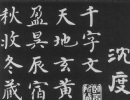 沈度
千字文
天地玄黄
盈昃辰宿
秋收冬藏